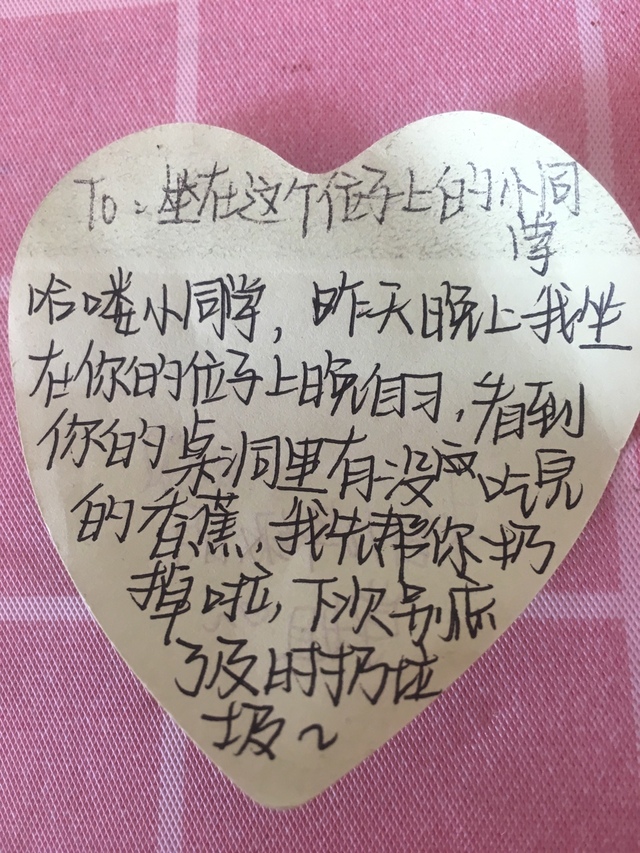 To：坐在这个位子上的小同
学
哈喽小同学，昨天晚上我坐
在你的位子上晚自习，看到
你的桌洞里有没 吃完
的香蕉，我先帮你扔
掉啦，下次别忘
了及时扔垃
圾～